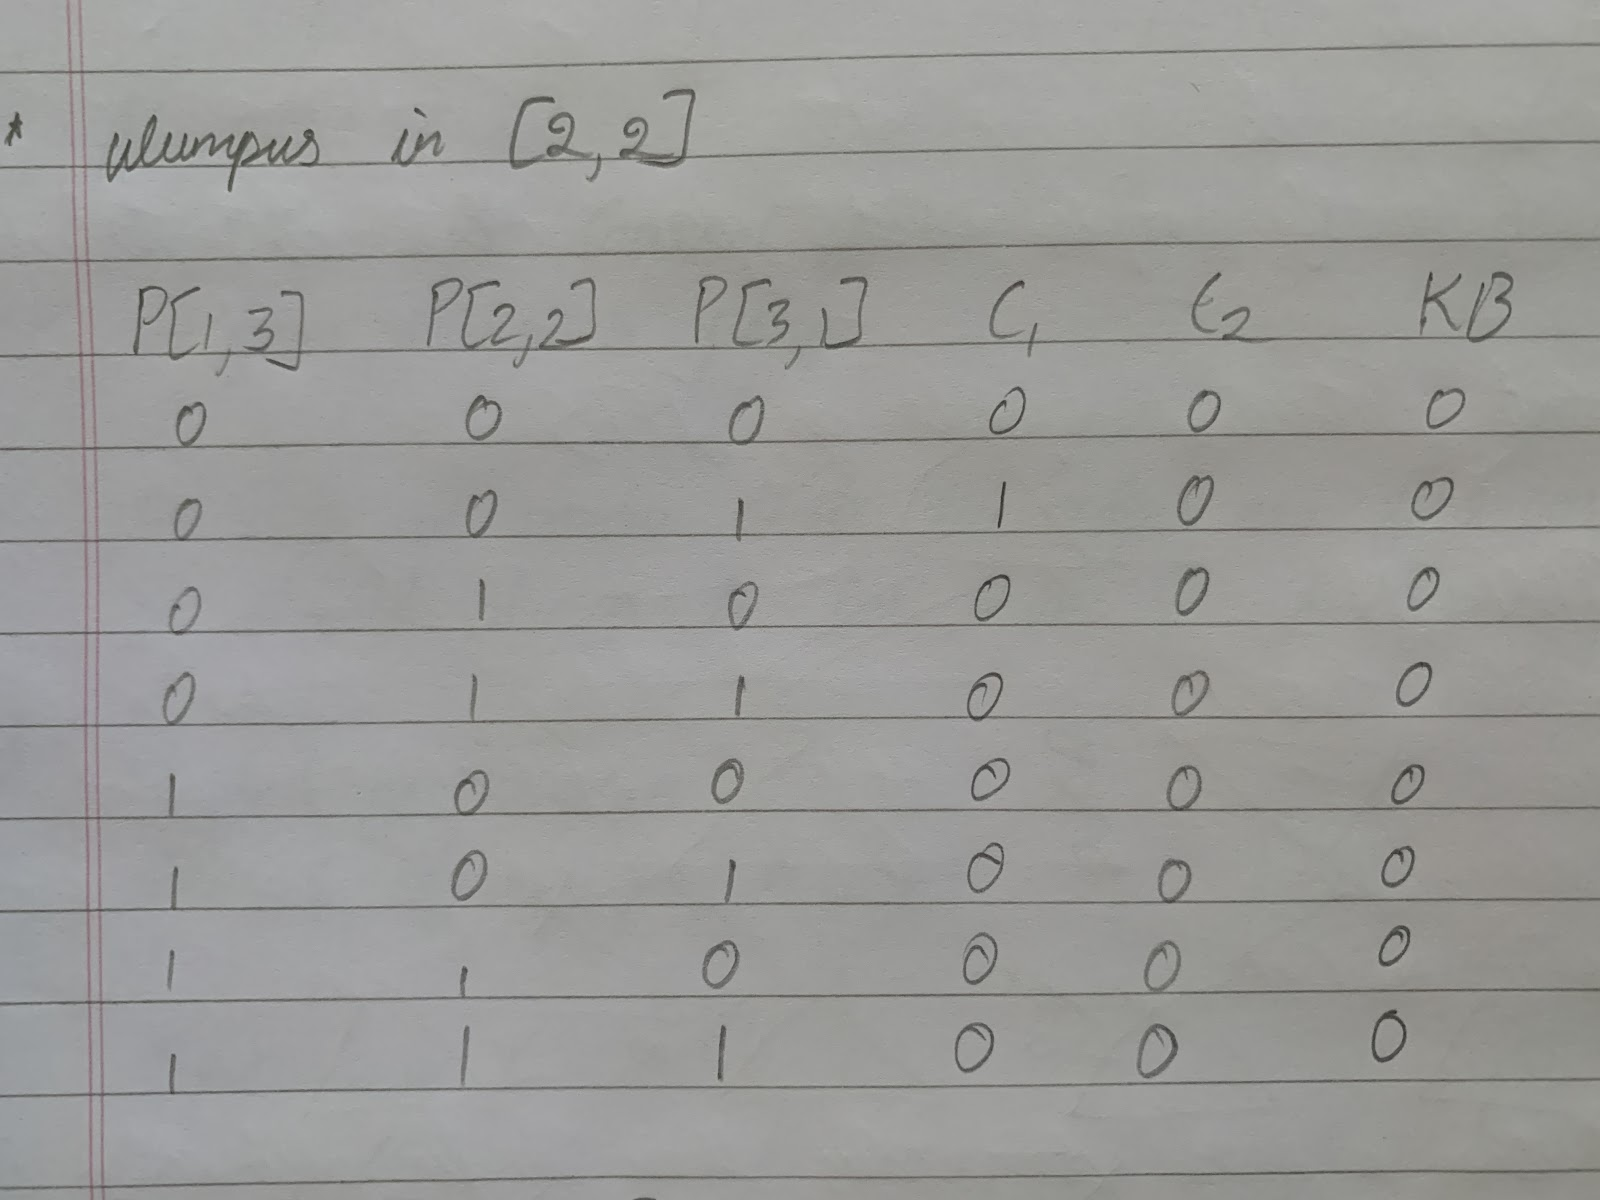 * Wumpus in [2,2]
P[1,3] P[2,2] P[3,1] C1 C2 KB
0 0 0 0 0 0
0 0 1 1 0 0
0 1 0 0 0 0
0 1 1 0 0 0
1 0 0 0 0 0
1 0 1 0 0 0
1 1 0 0 0 0
1 1 1 0 0 0